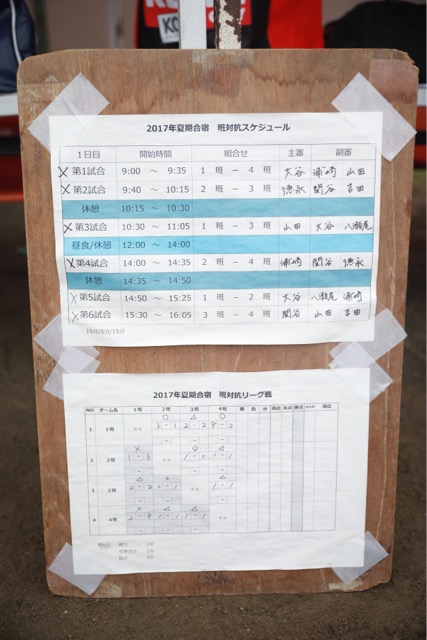 2017年夏期合宿 班対抗スケジュール
1日目 開始時間 組合せ 主審 副審
第1試合 9:00 ～ 9:35 1 班 － 4 班 大谷 浦崎 山田
第2試合 9:40 ～ 10:15 2 班 － 3 班 徳永 関谷 吉田
休憩 10:15 ～ 10:30
第3試合 10:30 ～ 11:05 1 班 － 3 班 山田 大谷 八瀬尾
昼食/休憩 12:00 ～ 14:00
第4試合 14:00 ～ 14:35 2 班 － 4 班 浦崎 関谷 徳永
休憩 14:35 ～ 14:50
第5試合 14:50 ～ 15:25 1 班 － 2 班 大谷 八瀬尾 浦崎
第6試合 15:30 ～ 16:05 3 班 － 4 班 関谷 山田 吉田
15分/5分/15分
2017年夏期合宿 班対抗リーグ戦
NO チーム名 1班 2班 3班 4班 勝 負 分 得点 失点 勝点 順位
○ △ ○
1 1班 3 - 1 2 - 2 8 - 2
× ○ △
2 2班 1 - 3 1 - 0 1 - 1
△ × △
3 3班 2 - 2 0 - 1 1 - 1
× △ △
4 4班 2 - 8 1 - 1 1 - 1